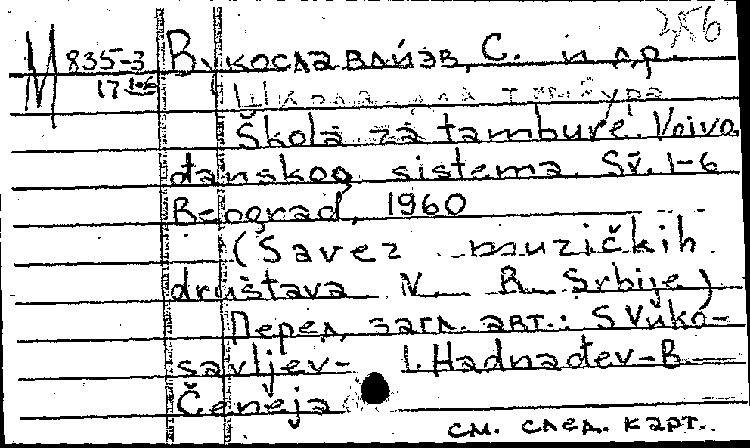 256
М 835-3 Вукославлйэв, С. и др.
17 1-6
Школа для тамбура
Škola za tambure. Voivo
đanskog sistema. Sv. 1-6
Beograd, 1960
(Savez muzičkih
društava N. R. Srbije)
Перед загл. авт.: S Vuko-
savljev- I. Hadnađev-B
Čeneja
см. след. карт.